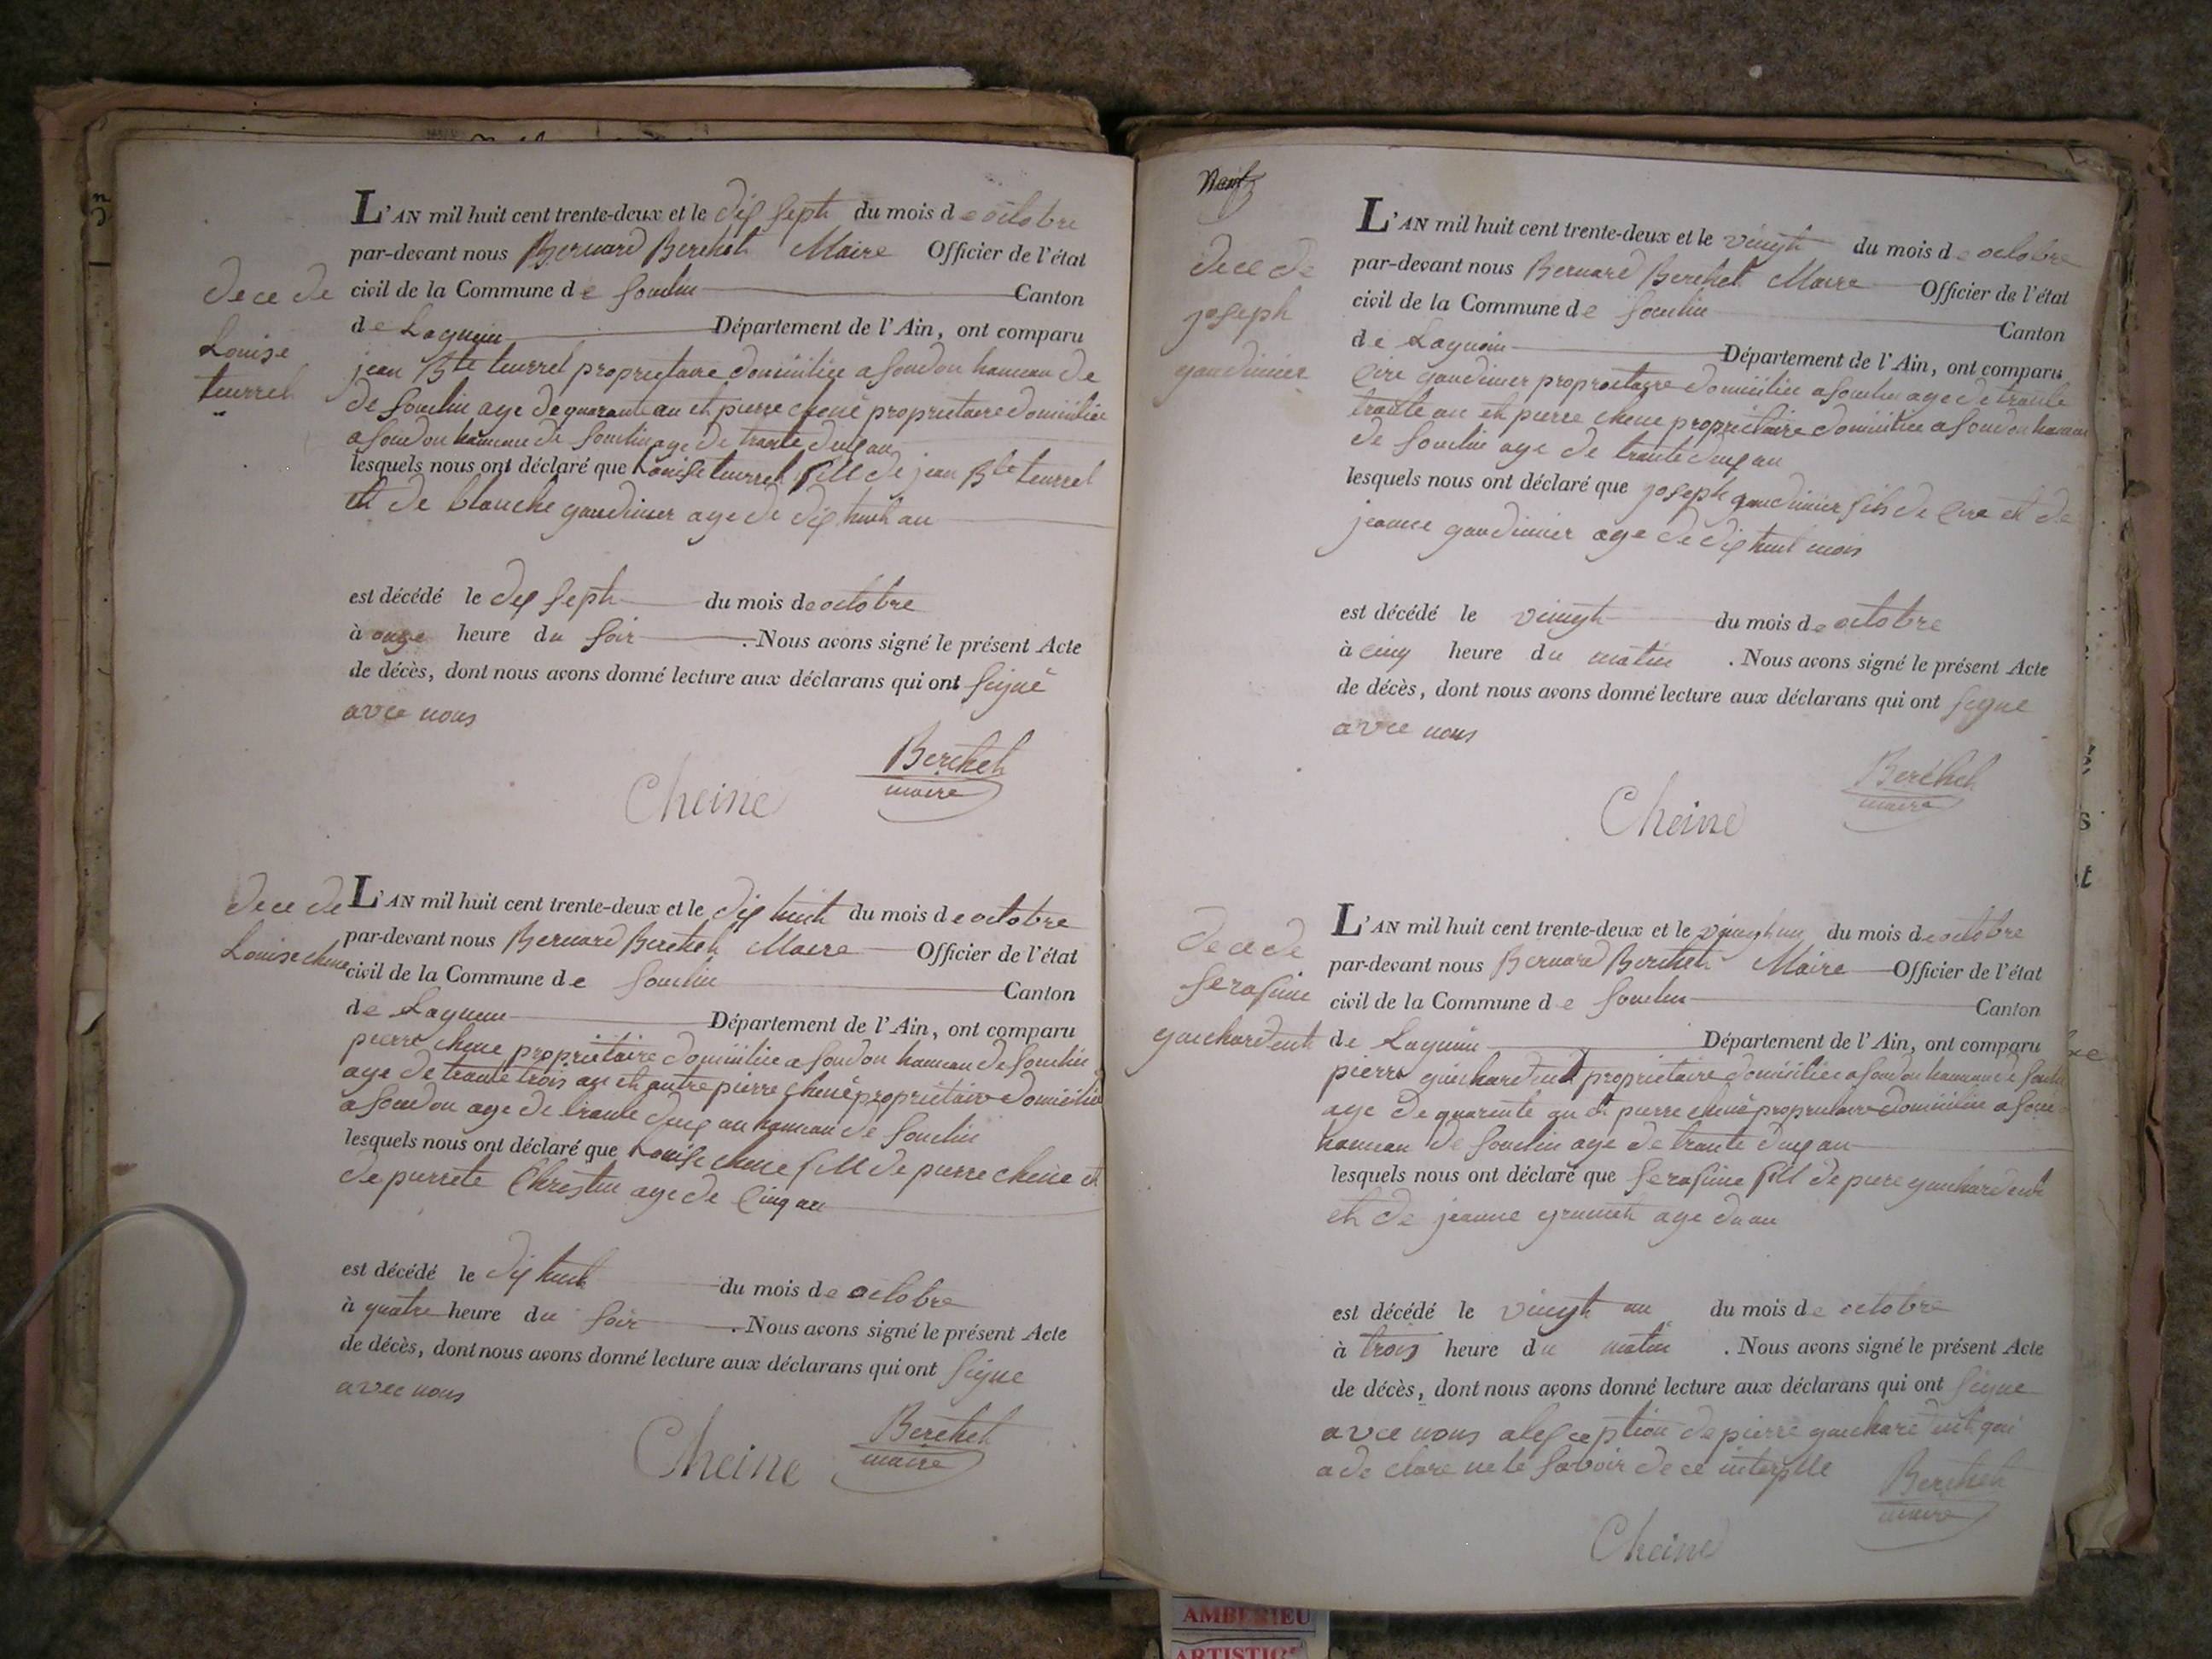 L'AN mil huit cent trente-deux et le dix sept du mois de octobre
par-devant nous Bernard Berthet Maire Officier de l'état
civil de la Commune de Souclin Canton
de Lagnieu Département de l'Ain, ont comparu
dece de
Louise
teurrel
jean Bte teurrel proprietaire domicilie a soudon hameau de
de souclin age de quarante an et pierre chene proprietaire domicilie
a soudon hameau de souclin age de trante deux an
lesquels nous ont déclaré que Louise teurrel fille de jean Bte teurrel
et de blanche gaudinier age de dix huit an
est décédé le dix sept du mois de octobre
à onze heure du soir . Nous avons signé le présent Acte
de décès, dont nous avons donné lecture aux déclarans qui ont signé
avec nous
Berthet
maire
Cheine
dece de
Louise chene
L'AN mil huit cent trente-deux et le dix huit du mois de octobre
par-devant nous Bernard Berthet Maire Officier de l'état
civil de la Commune de souclin Canton
de Lagnieu Département de l'Ain, ont comparu
pierre chene proprietaire domicilie a soudon hameau de souclin
age de trante trois an et autre pierre chene proprietaire domicilie
a soudon age de trante deux an hameau de souclin
lesquels nous ont déclaré que Louise chene fille de pierre cheine et
de pierrete Christin age de cinq an
est décédé le dix huit du mois de octobre
à quatre heure du soir . Nous avons signé le présent Acte
de décès, dont nous avons donné lecture aux déclarans qui ont signe
avec nous
Berthet
maire
Cheine
Neuf
dece de
joseph
gaudinier
L'AN mil huit cent trente-deux et le vingt du mois de octobre
par-devant nous Bernard Berthet Maire Officier de l'état
civil de la Commune de souclin Canton
de Lagnieu Département de l'Ain, ont comparu
gaudinier proprietaire domicilie a souclin age de trante
trante an et pierre chene proprietaire domicilie a soudon hameau
de souclin age de trante deux an
lesquels nous ont déclaré que joseph gaudinier fils de et de
jeanne gaudinier age de dix huit mois
est décédé le vingt du mois de octobre
à cinq heure du matin . Nous avons signé le présent Acte
de décès, dont nous avons donné lecture aux déclarans qui ont signe
avec nous
Berthet
maire
Cheine
dece de
serafine
guichardent
L'AN mil huit cent trente-deux et le vingt un du mois de octobre
par-devant nous Bernard Berthet Maire Officier de l'état
civil de la Commune de souclin Canton
de Lagnieu Département de l'Ain, ont comparu
pierre guichardent proprietaire domicilie a soudon hameau de
age de quarente an et pierre chene proprietaire domicilie a
hameau de souclin age de trante deux an
lesquels nous ont déclaré que serafine fille de piere guichardent
et de jeanne age
est décédé le vingt un du mois de octobre
à trois heure du matin . Nous avons signé le présent Acte
de décès, dont nous avons donné lecture aux déclarans qui ont signe
avec nous alexception de pierre guichardent qui
a de clare ne le savoir de ce
Berthet
maire
Cheine
AMBERIEU